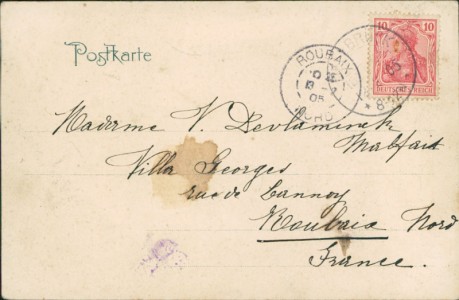 Postkarte
10 10
DEUTSCHES REICH
ROUBAIX
13 - 2
05
NORD
Madame V. Devlaminck
Malfait
Villa Georges
rue de Lannoy
Roubaix Nord
France.